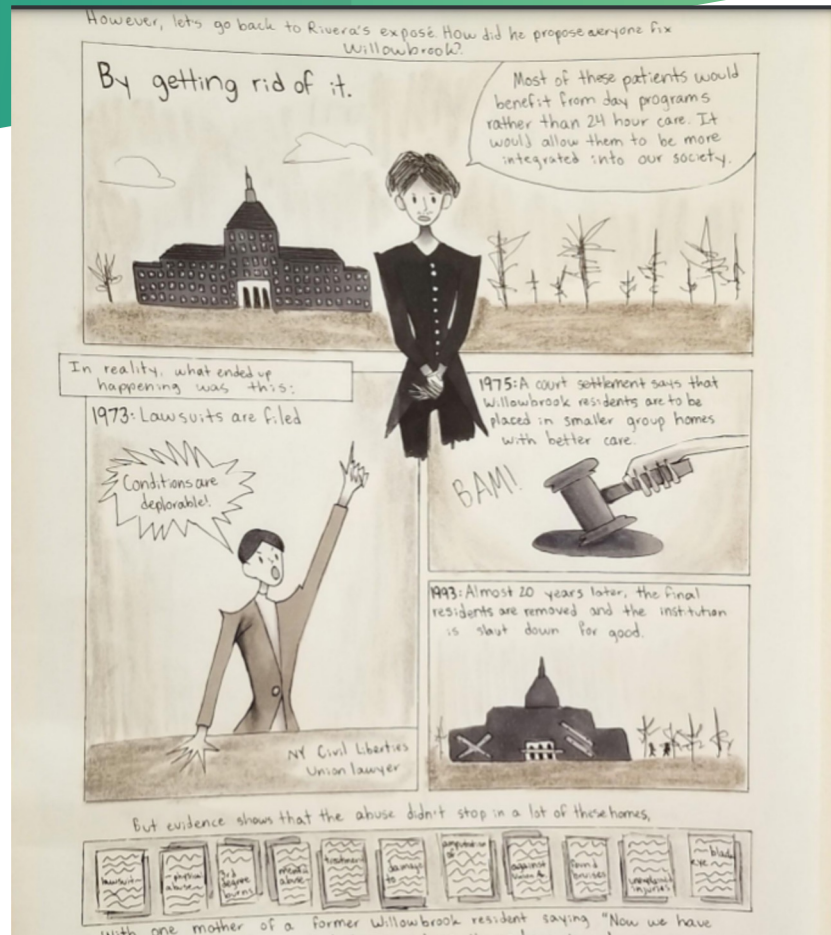 However, let's go back to Rivera's exposé. How did he propose everyone fix
Willowbrook?
By getting rid of it.
Most of these patients would
benefit from day programs
rather than 24 hour care. It
would allow them to be more
integrated into our society.
In reality, what ended up
happening was this:
1973: Lawsuits are filed
Conditions are
deplorable!
NY Civil Liberties
Union lawyer
1975: A court settlement says that
Willowbrook residents are to be
placed in smaller group homes
with better care.
BAM!
1993: Almost 20 years later, the final
residents are removed and the institution
is shut down for good.
But evidence shows that the abuse didn't stop in a lot of these homes,
lawsuit
physical
abuse
3rd
degree
burns
mental
abuse
treatment
damage
to
amputation
of
against
found
bruises
unexplained
injuries
black
eye
With one mother of a former Willowbrook resident saying "Now we have